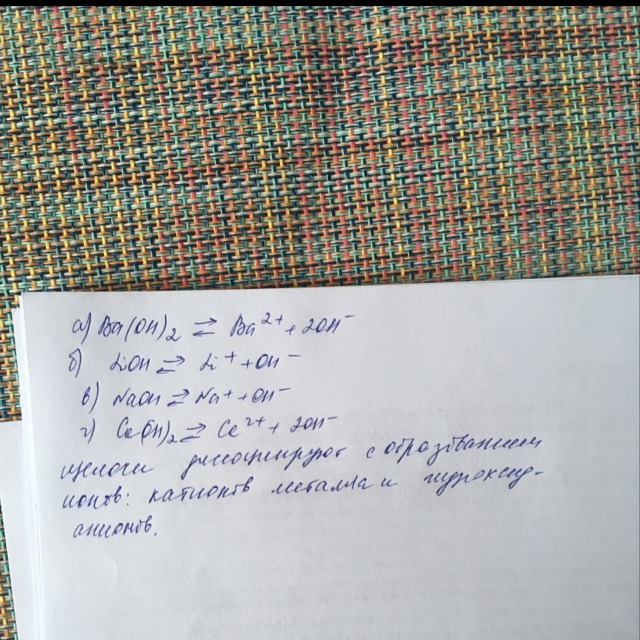 а) Ba(OH)₂ ⇄ Ba²⁺ + 2OH⁻
б) LiOH ⇄ Li⁺ + OH⁻
в) NaOH ⇄ Na⁺ + OH⁻
г) Ca(OH)₂ ⇄ Ca²⁺ + 2OH⁻
щелочи диссоциируют с образованием
ионов: катионов металла и гидроксид-
анионов.